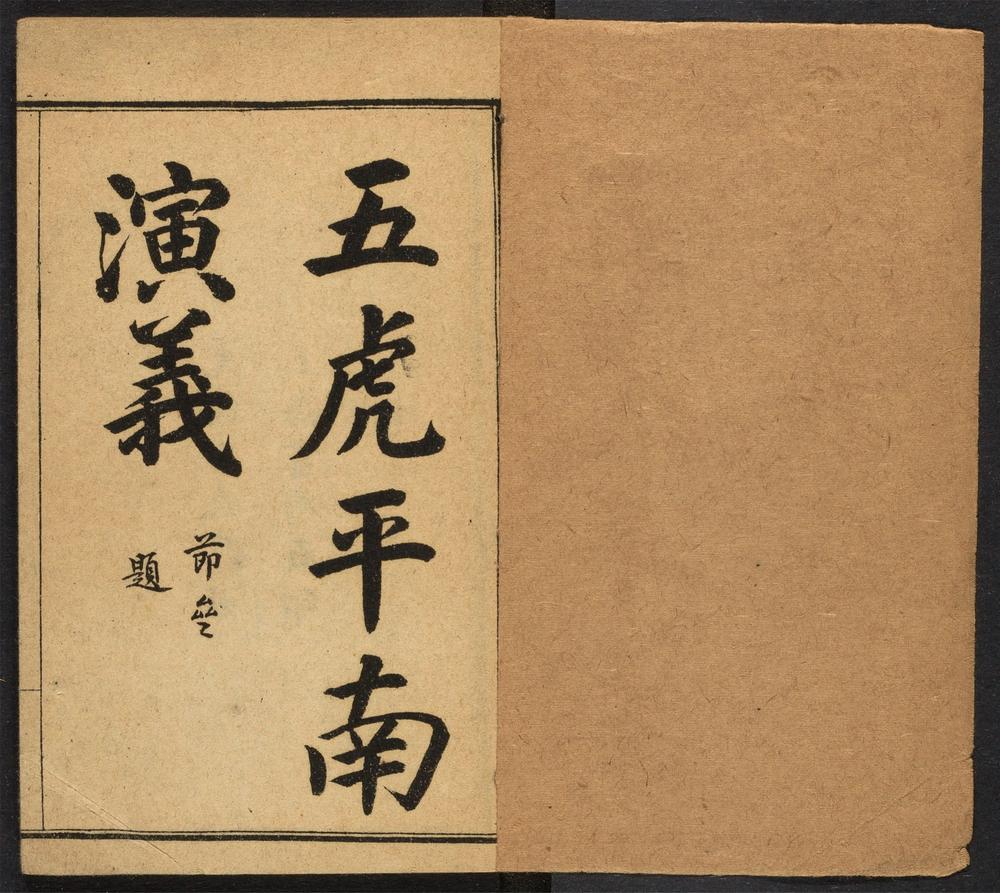 五虎平南
演義
節
題